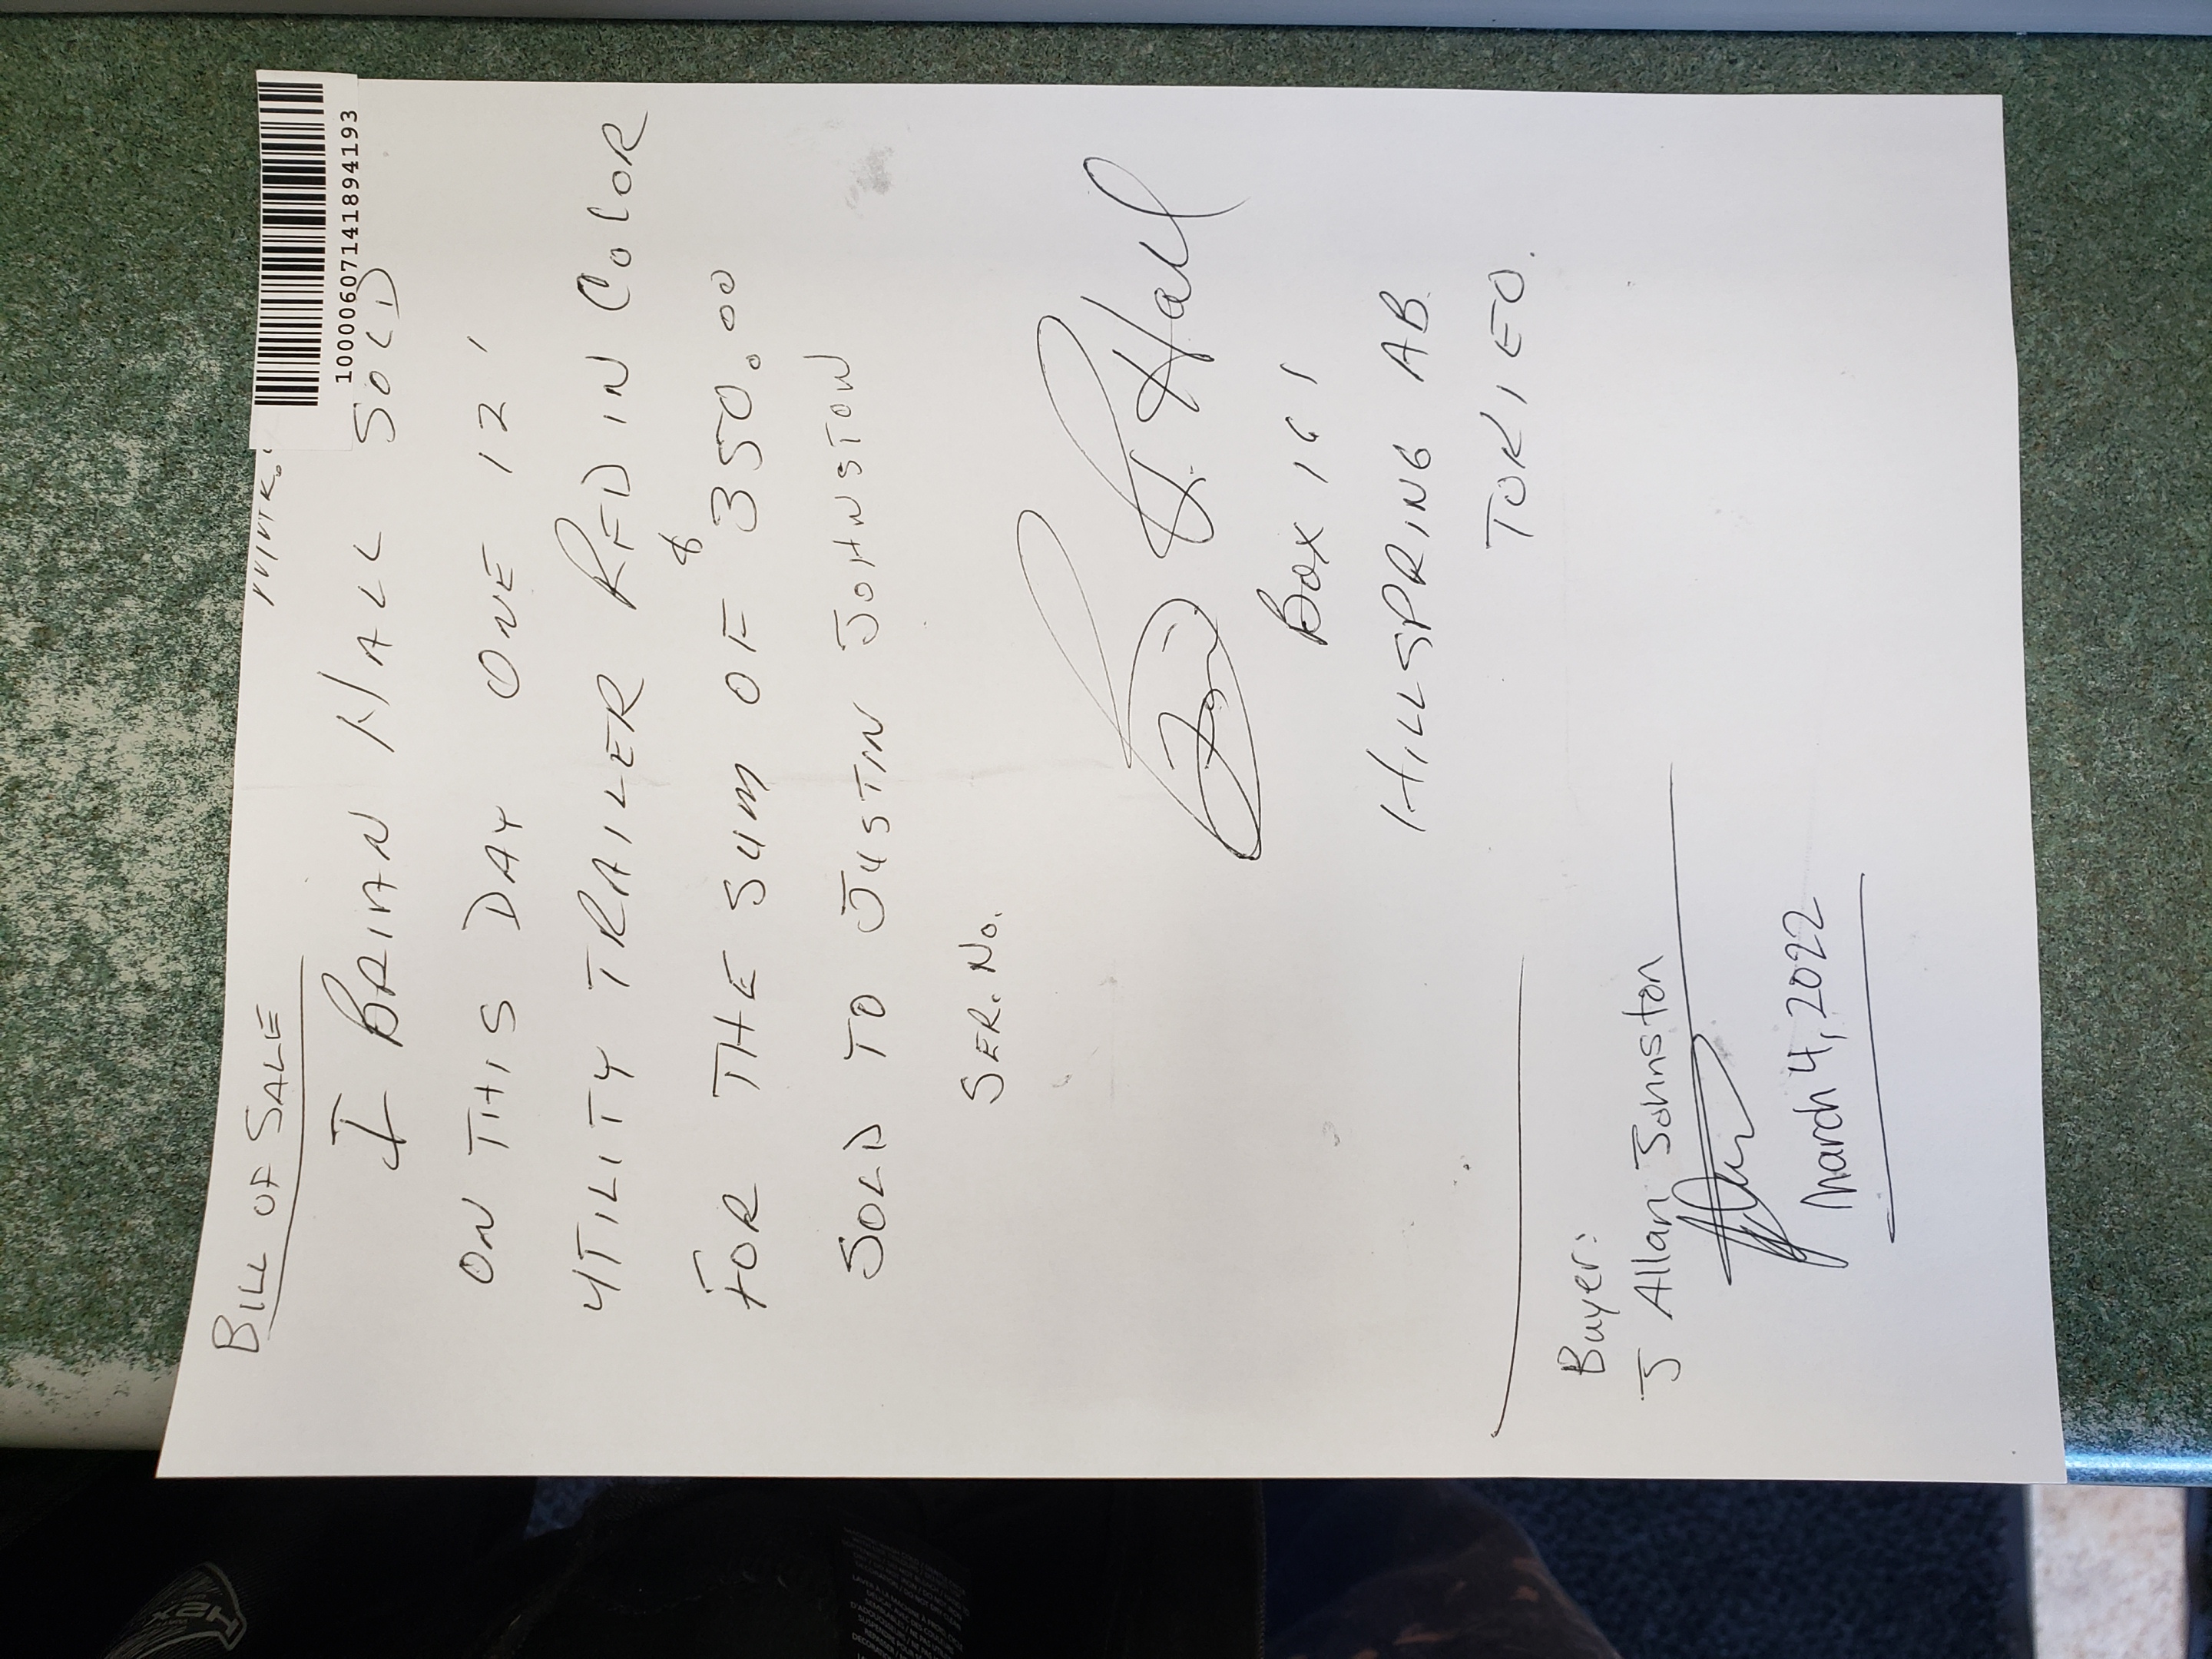 BILL OF SALE
100006071418894193
I BRIAN HALL SOLD
ON THIS DAY ONE 12'
UTILITY TRAILER RED IN COLOR
FOR THE SUM OF $350.00
SOLD TO JUSTIN JOHNSTON
SER. NO.
Brian S. Hall
BOX 161
HILLSPRING AB.
TOK1EO.
Buyer:
J Allan Johnston
March 4, 2022